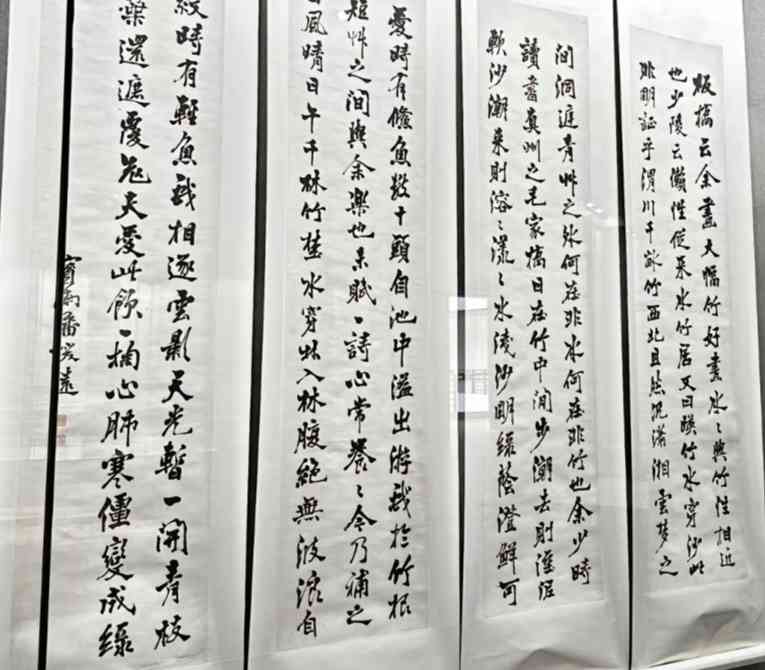 板橋云余畫大幅竹好畫水〻與竹性相近
也少陵云懶性從來水竹居又曰映竹水穿沙此
非明証乎渭川千畝竹西北且然況瀟湘雲夢之
間洞庭青艸之外何在非水何在非竹也余少時
讀書真州之毛家橋日在竹中閒步潮去則溼泥
軟沙潮來則溶〻漾〻水淺沙明綠蔭澄鮮可
愛時有儵魚數十頭自池中溢出游戲於竹根
短艸之間與余樂也未賦一詩心常養〻今乃補之
風晴日午千林竹野水穿林入林腹絕無波浪自
紋時有輕魚戲相逐雲影天光暫一開青枝
葉還遮覆老夫愛此飲一掬心肺寒僵變成綠